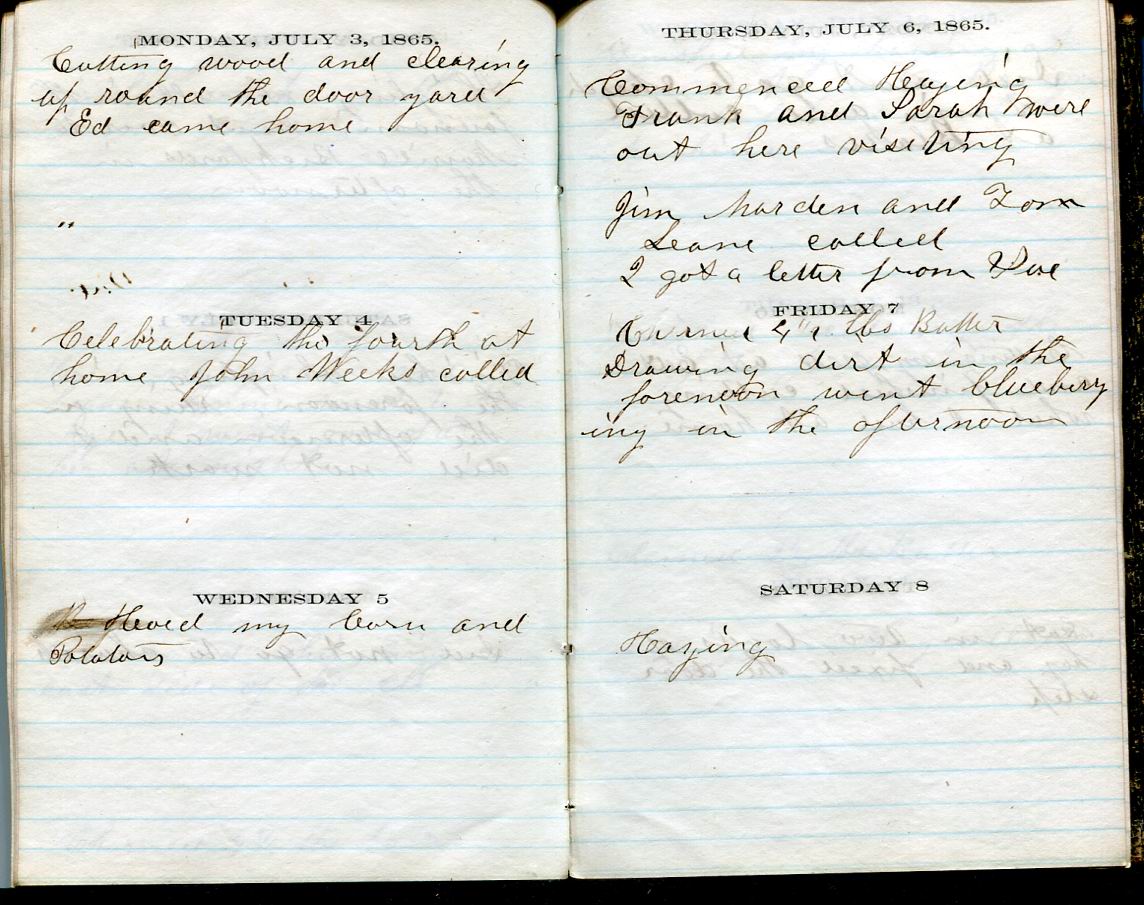 MONDAY, JULY 3, 1865.
Cutting wood and clearing
up round the door yard
Ed came home
"
TUESDAY 4
Celebrating the fourth at
home John Weeks called
WEDNESDAY 5
Hoed my Corn and
Potatoes
THURSDAY, JULY 6, 1865.
Commenced Haying
Frank and Sarah were
out here viseting
Jim Marden and Tom
Leane called
I got a letter from
FRIDAY 7
Churned lbs Butter
Drawing dirt in the
forenoon went blueberry
ing in the afternoon
SATURDAY 8
Haying